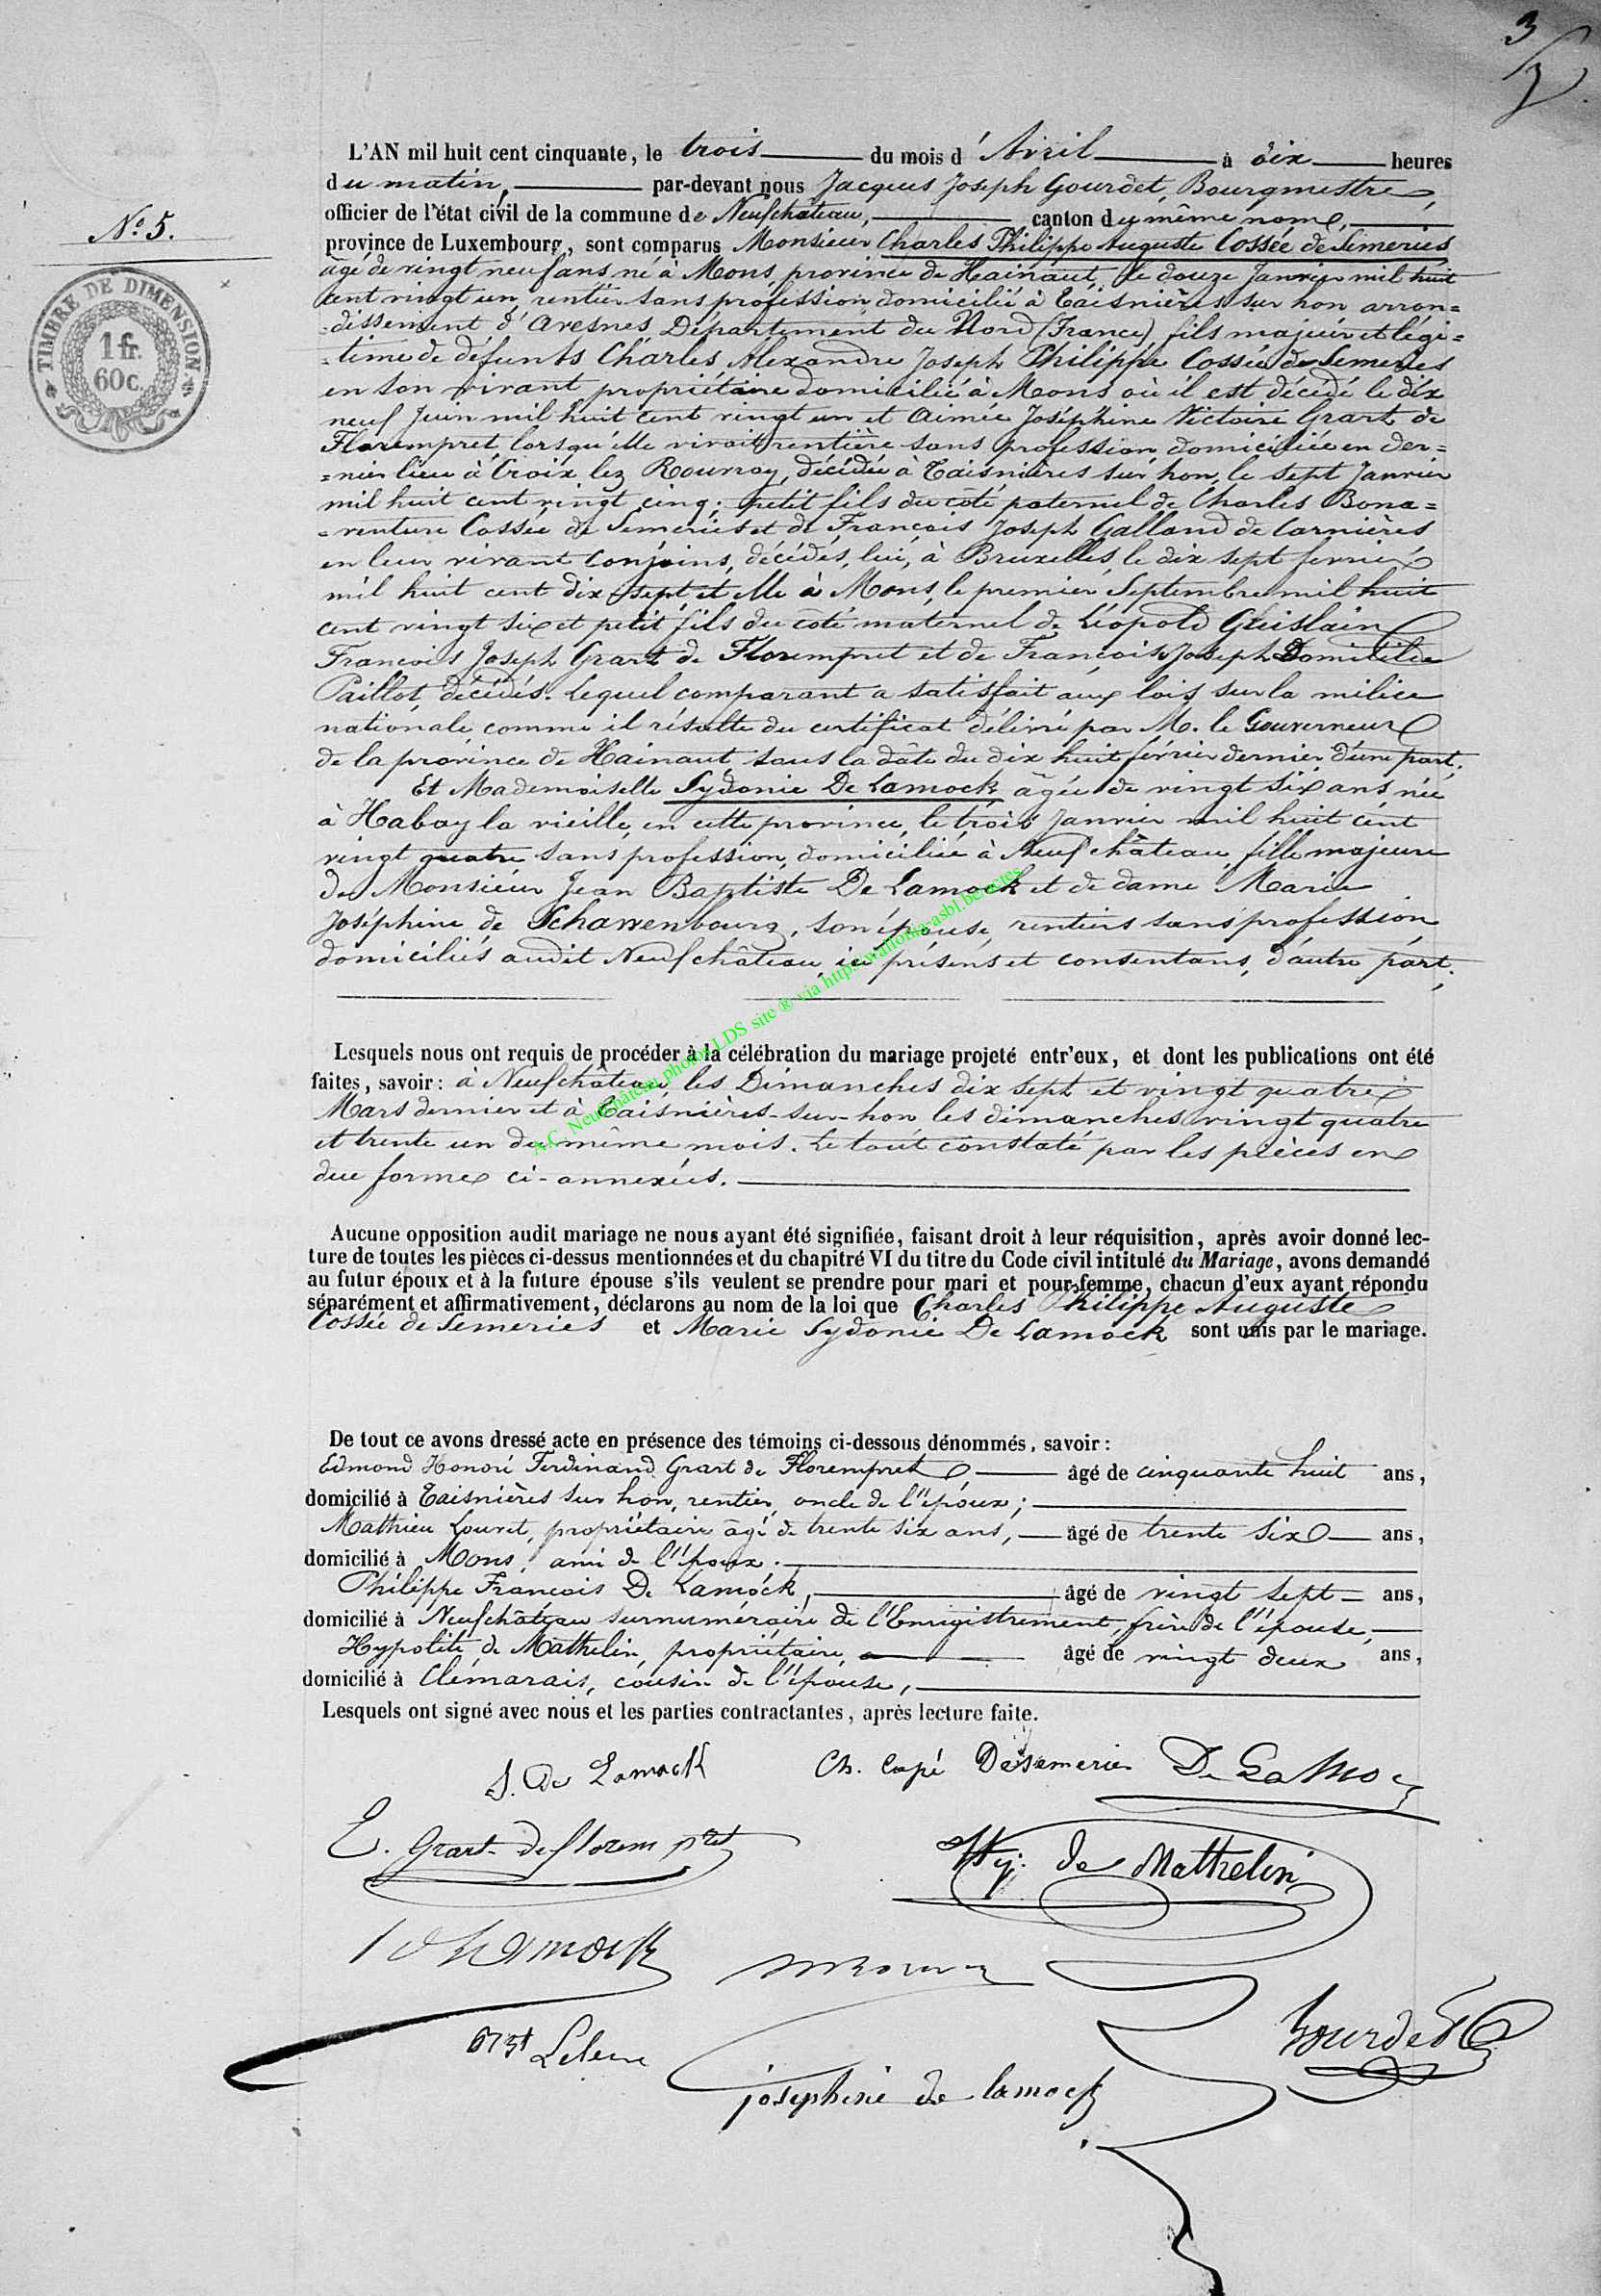 3
N.o 5.
TIMBRE DE DIMENSION
1 fr.
60c.
L'AN mil huit cent cinquante, le trois du mois d'Avril à dix heures
du matin, par-devant nous Jacques Joseph Gourdet, Bourgmestre,
officier de l'état civil de la commune de Neufchâteau, canton du même nom,
province de Luxembourg, sont comparus Monsieur Charles Philippe Auguste Cossée de Semeries
âgé de vingt neuf ans, né à Mons, province de Hainaut, le douze Janvier mil huit
cent vingt un, rentier sans profession domicilié à Taisnières sur hon, arron=
=dissement d'Avesnes Département du Nord (France) fils majeur et légi=
=time de défunts Charles Alexandre Joseph Philippe Cossée de Semeries
en son vivant propriétaire domicilié à Mons où il est décédé le dix
neuf Juin mil huit cent vingt un et Aimée Joséphine Victoire Grart de
Florempret, lorsqu'elle vivait rentière sans profession domiciliée en der=
=nier lieu à Croix lez Rouvroy, décédée à Taisnières sur hon, le sept Janvier
mil huit cent vingt cinq; petit fils du côté paternel de Charles Bona=
=venture Cossée de Semeries et de François Joseph Galland de Carnières
en leur vivant conjoins, décédés, lui, à Bruxelles, le dix sept fevrier
mil huit cent dix sept et elle à Mons, le premier Septembre mil huit
cent vingt six et petit fils du côté maternel de Léopold Ghislain
François Joseph Grart de Florempret et de François Joseph Domitilie
Paillot, décédés. Lequel comparant a satisfait aux lois sur la milice
nationale comme il résulte du certificat délivré par M. le Gouverneur
de la province de Hainaut sous la date du dix huit février dernier d'une part.
Et Mademoiselle Sydonie De Lamock âgée de vingt six ans née
à Habay la vieille, en cette province, le trois Janvier mil huit cent
vingt quatre sans profession, domiciliée à Neufchâteau fille majeure
de Monsieur Jean Baptiste De Lamock et de dame Marie
Joséphine de Schawenbourg, son épouse, rentiers sans profession
domiciliés audit Neufchâteau, ici présens et consentans, d'autre part;
A.C. Neufchâteau photos LDS site ® via
Lesquels nous ont requis de procéder à la célébration du mariage projeté entr'eux, et dont les publications ont été
faites, savoir: à Neufchâteau les Dimanches dix sept et vingt quatre
Mars dernier et à Taisnières-sur-hon les dimanches vingt quatre
et trente un du même mois. Le tout constaté par les pièces en
due forme ci-annexées.
Aucune opposition audit mariage ne nous ayant été signifiée, faisant droit à leur réquisition, après avoir donné lec-
ture de toutes les pièces ci-dessus mentionnées et du chapitré VI du titre du Code civil intitulé du Mariage, avons demandé
au futur époux et à la future épouse s'ils veulent se prendre pour mari et pour femme, chacun d'eux ayant répondu
séparément et affirmativement, déclarons au nom de la loi que Charles Philippe Auguste
Cossée de Semeries et Marie Sydonie De Lamock sont unis par le mariage.
De tout ce avons dressé acte en présence des témoins ci-dessous dénommés, savoir:
Edmond Honoré Ferdinand Grart de Florempret âgé de cinquante huit ans,
domicilié à Taisnières sur hon, rentier, oncle de l'époux;
Mathieu Louvet, propriétaire âgé de trente six ans, âgé de trente six ans,
domicilié à Mons, ami de l'époux.
Philippe François De Lamock, âgé de vingt sept ans,
domicilié à Neufchâteau surnuméraire de l'Enregistrement, frère de l'épouse,
Hypolite de Mathelin, propriétaire, âgé de vingt deux ans,
domicilié à Clémarais, cousin de l'épouse,
Lesquels ont signé avec nous et les parties contractantes, après lecture faite.
S. de Lamock Ch. Desemeries De Lamock
E. Grart de florempret Hy. de Mathelin
Lamock
Gourdet
josephine de lamock